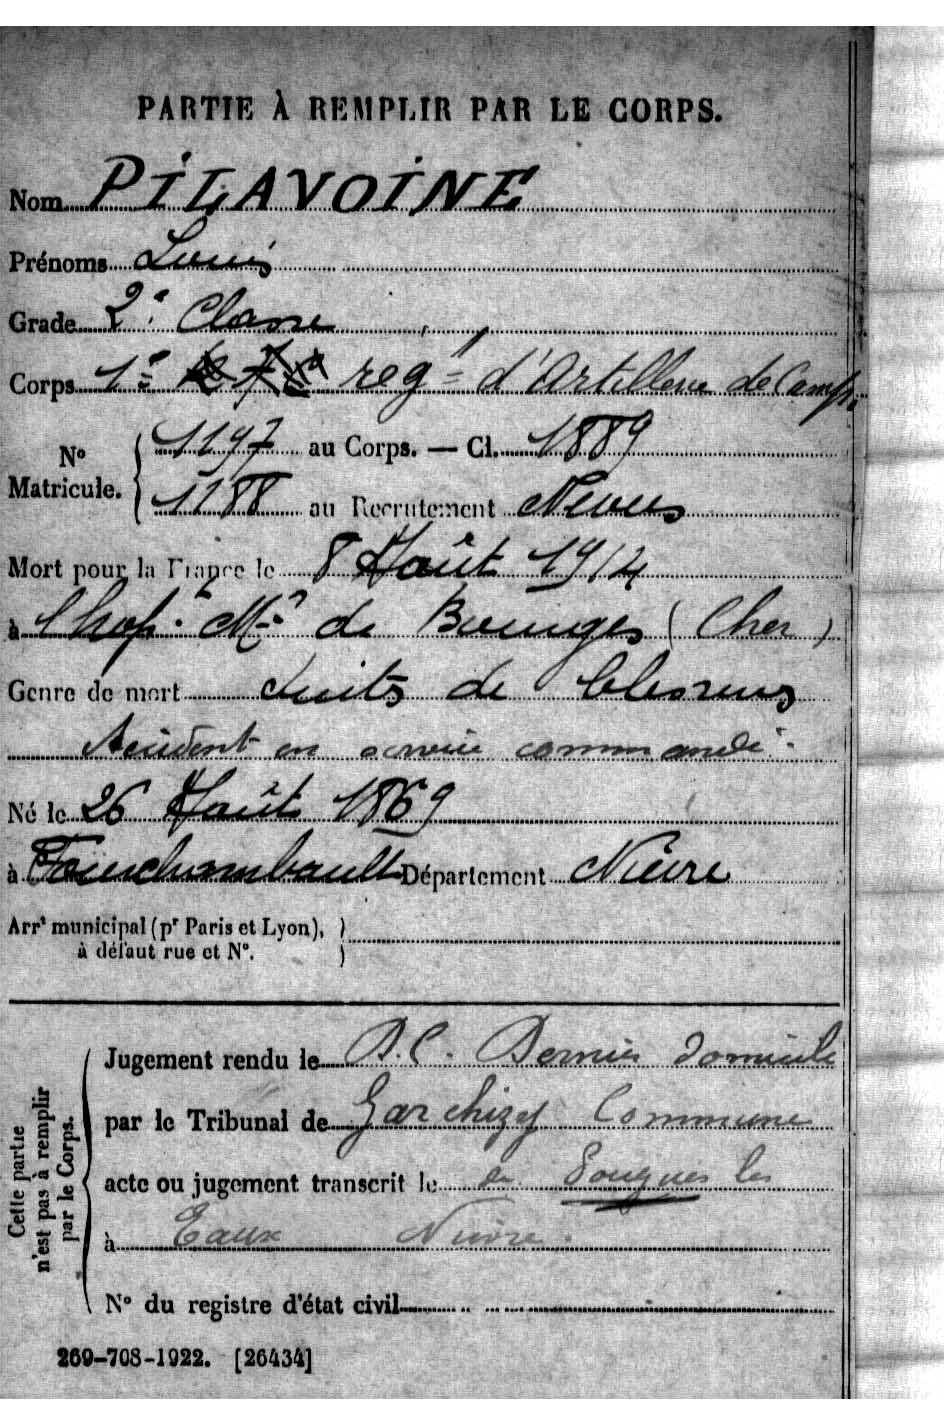 PARTIE À REMPLIR PAR LE CORPS.
Nom PILAVOINE
Prénoms Louis
Grade 2e Classe
Corps 1er régt d'Artillerie de Camp.
No Matricule. 1197 au Corps. — Cl. 1889
1188 au Recrutement Nevers
Mort pour la France le 8 Août 1914
à l'hop. Mre de Bourges (Cher)
Genre de mort suites de blessures
Accident en service commandé.
Né le 26 Août 1869
à Fourchambault Département Nièvre
Arrt municipal (pr Paris et Lyon),
à défaut rue et No.
Cette partie n'est pas à remplir par le Corps.
Jugement rendu le D.C. Dernier domicile
par le Tribunal de Garchizy Commune
acte ou jugement transcrit le de Pougues les
à Eaux Nièvre.
No du registre d'état civil
269-708-1922. [26434]